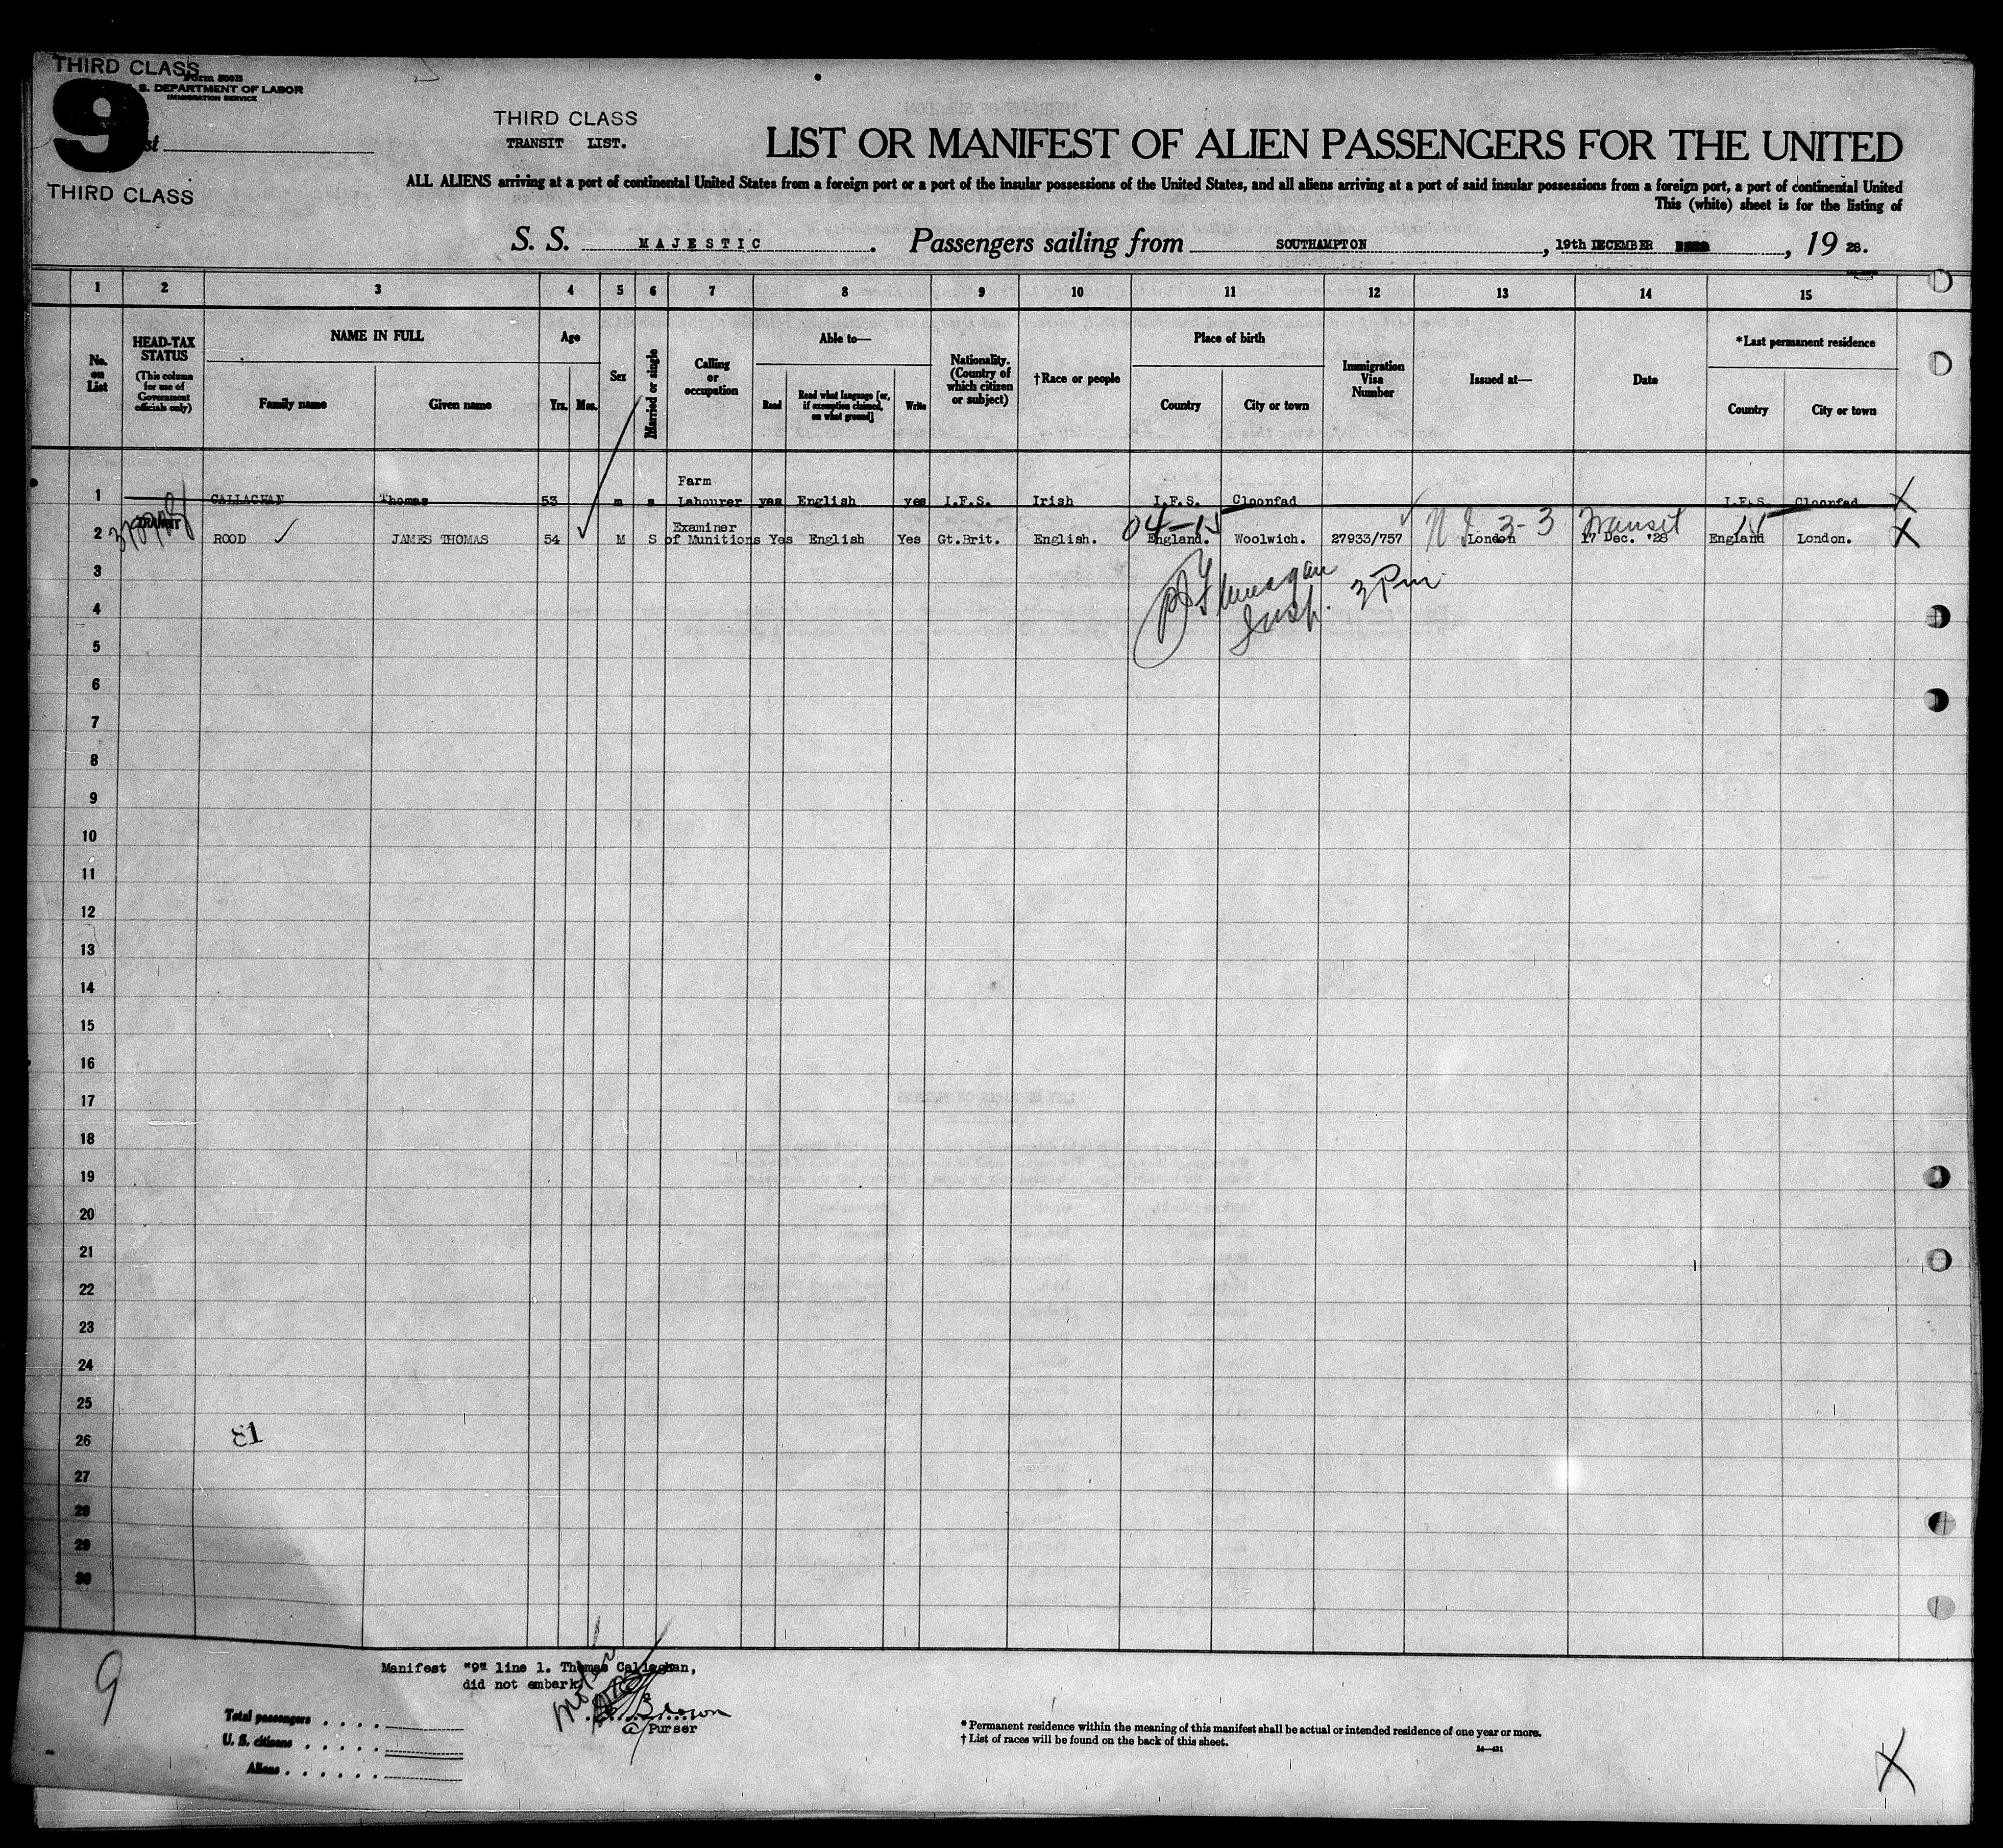 THIRD CLASS
Form 500B
U. S. DEPARTMENT OF LABOR
IMMIGRATION SERVICE
9
THIRD CLASS
THIRD CLASS
TRANSIT LIST.
LIST OR MANIFEST OF ALIEN PASSENGERS FOR THE UNITED
ALL ALIENS arriving at a port of continental United States from a foreign port or a port of the insular possessions of the United States, and all aliens arriving at a port of said insular possessions from a foreign port, a port of continental United
This (white) sheet is for the listing of
S. S. MAJESTIC . Passengers sailing from SOUTHAMPTON , 19th DECEMBER , 19 28.
1 2 3 4 5 6 7 8 9 10 11 12 13 14 15
No. on List
HEAD-TAX STATUS
(This column for use of Government officials only)
NAME IN FULL
Family name Given name
Age
Yrs. Mos.
Sex
Married or single
Calling or occupation
Able to—
Read Read what language [or, if exemption claimed, on what ground] Write
Nationality. (Country of which citizen or subject)
†Race or people
Place of birth
Country City or town
Immigration Visa Number
Issued at—
Date
*Last permanent residence
Country City or town
1 CALLAGHAN Thomas 53 m s Farm Labourer yes English yes I.F.S. Irish I.F.S. Cloonfad I.F.S. Cloonfad X
TRANSIT
04-15 3-3 Transit
2 ROOD JAMES THOMAS 54 M S Examiner of Munitions Yes English Yes Gt.Brit. English. England. Woolwich. 27933/757 London 17 Dec. '28 England London. X
Flannagan 3 Pm
Insp.
3
4
5
6
7
8
9
10
11
12
13
14
15
16
17
18
19
20
21
22
23
24
25
26
27
28
29
30
81
9
Manifest "9" line 1. Thomas Callaghan,
did not embark
Brown
a/Purser
Total passengers . . . .
U. S. citizens . . . . .
Aliens . . . . . .
* Permanent residence within the meaning of this manifest shall be actual or intended residence of one year or more.
† List of races will be found on the back of this sheet.
14—421
X